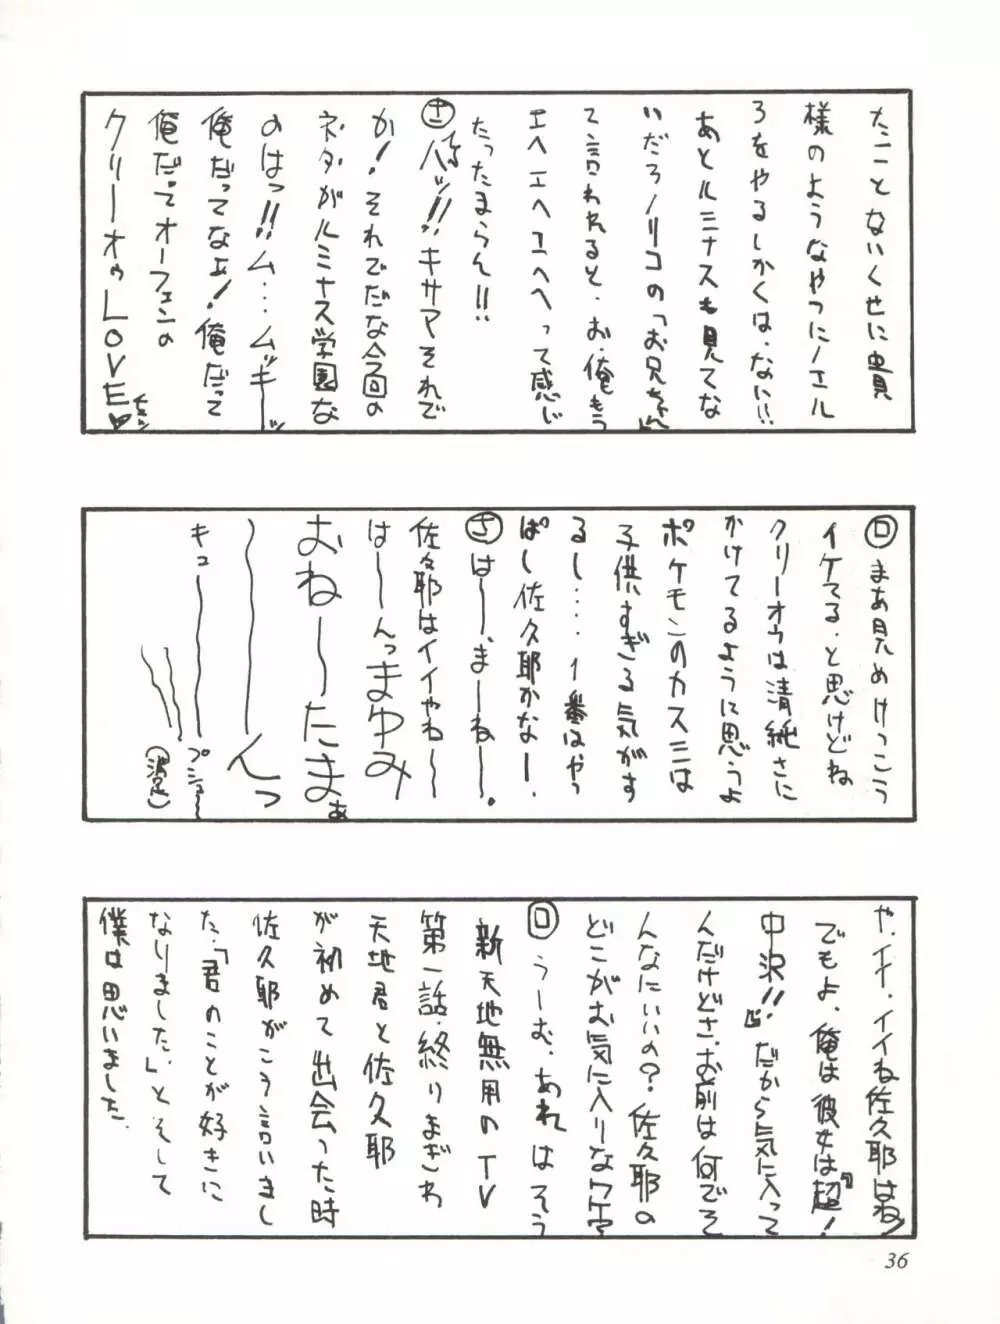 たことないくせに貴
様のようなやつにノエル
ろをやるしかくは、なに!!
あとルミナスも見てな
いだろノリコの「お兄ちゃん」
て言われると、お、俺もう
エヘエヘエヘヘって感じ
たったまらん!!
㋚ハッ!!キサマそれで
か!それでだな今回の
ネタがルミナス学園な
のはっ!!ム…ムッキーッ
俺だってなぁ!俺だって
俺だってオーフェンの
クリーオゥLOVE♥
㋺まあ見ためけっこう
イケてる、と思けどね
クリーオウは清純さに
かけてるように思うよ
ポケモンのカスミは
子供すぎる気がす
るし…、1番はやっ
ぱし佐久耶かなー、
㋚は〜、まーね〜。
佐々耶はイイやね〜
は〜んっまゆみ
おね〜たまぁ
〜んっ
キュー〜
プシュ〜
や、イイ、イイね佐久耶はね!
でもよ、俺は彼女は『超!
中沢!!』だから気に入って
んだけどさ、お前は何でそ
んなにいいの?佐久耶の
どこがお気に入りなワケ?
ロうーむ、あれはそう
新天地無用のTV
第一話、終りまぎわ
天地君と佐久耶
が初めて出会った時
佐久耶がこう言いまし
た、「君のことが好きに
なりました。」と、そして
僕は思いました。
36